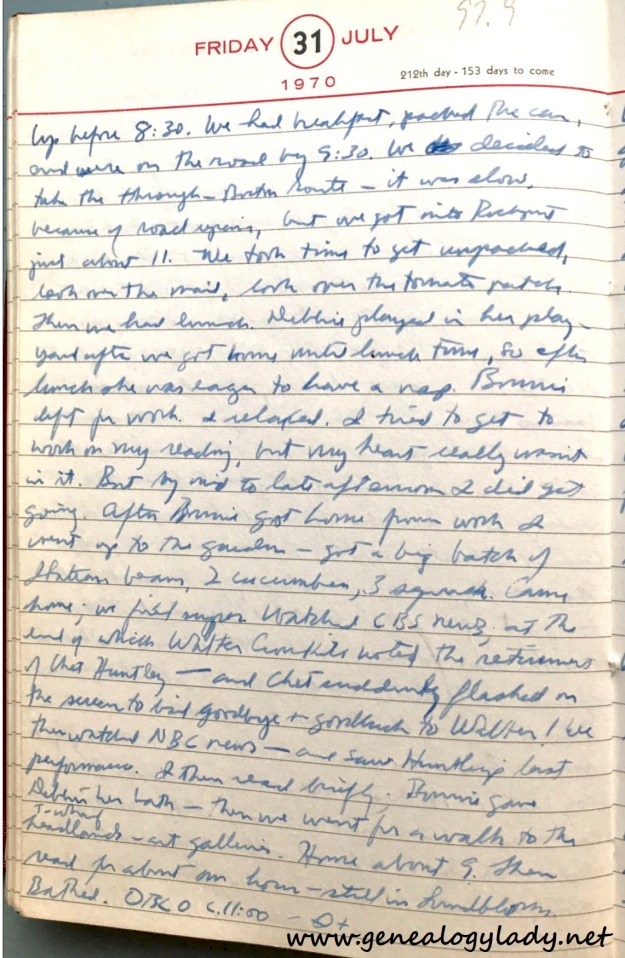 97.9
FRIDAY 31 JULY
1970
212th day - 153 days to come
Up before 8:30. We had breakfast, packed the car,
and were on the road by 9:30. We decided to
take the through-Boston route - it was slow,
because of road repairs, but we got into Rockport
just about 11. We took time to get unpacked,
look over the mail, look over the tomato patch.
Then we had lunch. Debbie played in her play-
yard after we got home until lunch time, so after
lunch she was eager to have a nap. Bonnie
left for work. I relaxed. I tried to get to
work on my reading, but my heart really wasn't
in it. But by mid to late afternoon I did get
going. After Bonnie got home from work I
went up to the garden - got a big batch of
Italian beans, 2 cucumbers, 3 squash. Came
home; we fixed supper. Watched CBS news, at the
end of which Walter Cronkite noted the retirement
of Chet Huntley - and Chet suddenly flashed on
the screen to bid goodbye + good luck to Walter! We
then watched NBC news - and saw Huntley's last
performance. I then read briefly. Bonnie gave
Debbie her bath - then we went for a walk to the
T-Wharf
headlands - art galleries. Home about 9. Then
read for about an hour - still in Lindbloom.
Bathed. c. 11:00
www.genealogylady.net